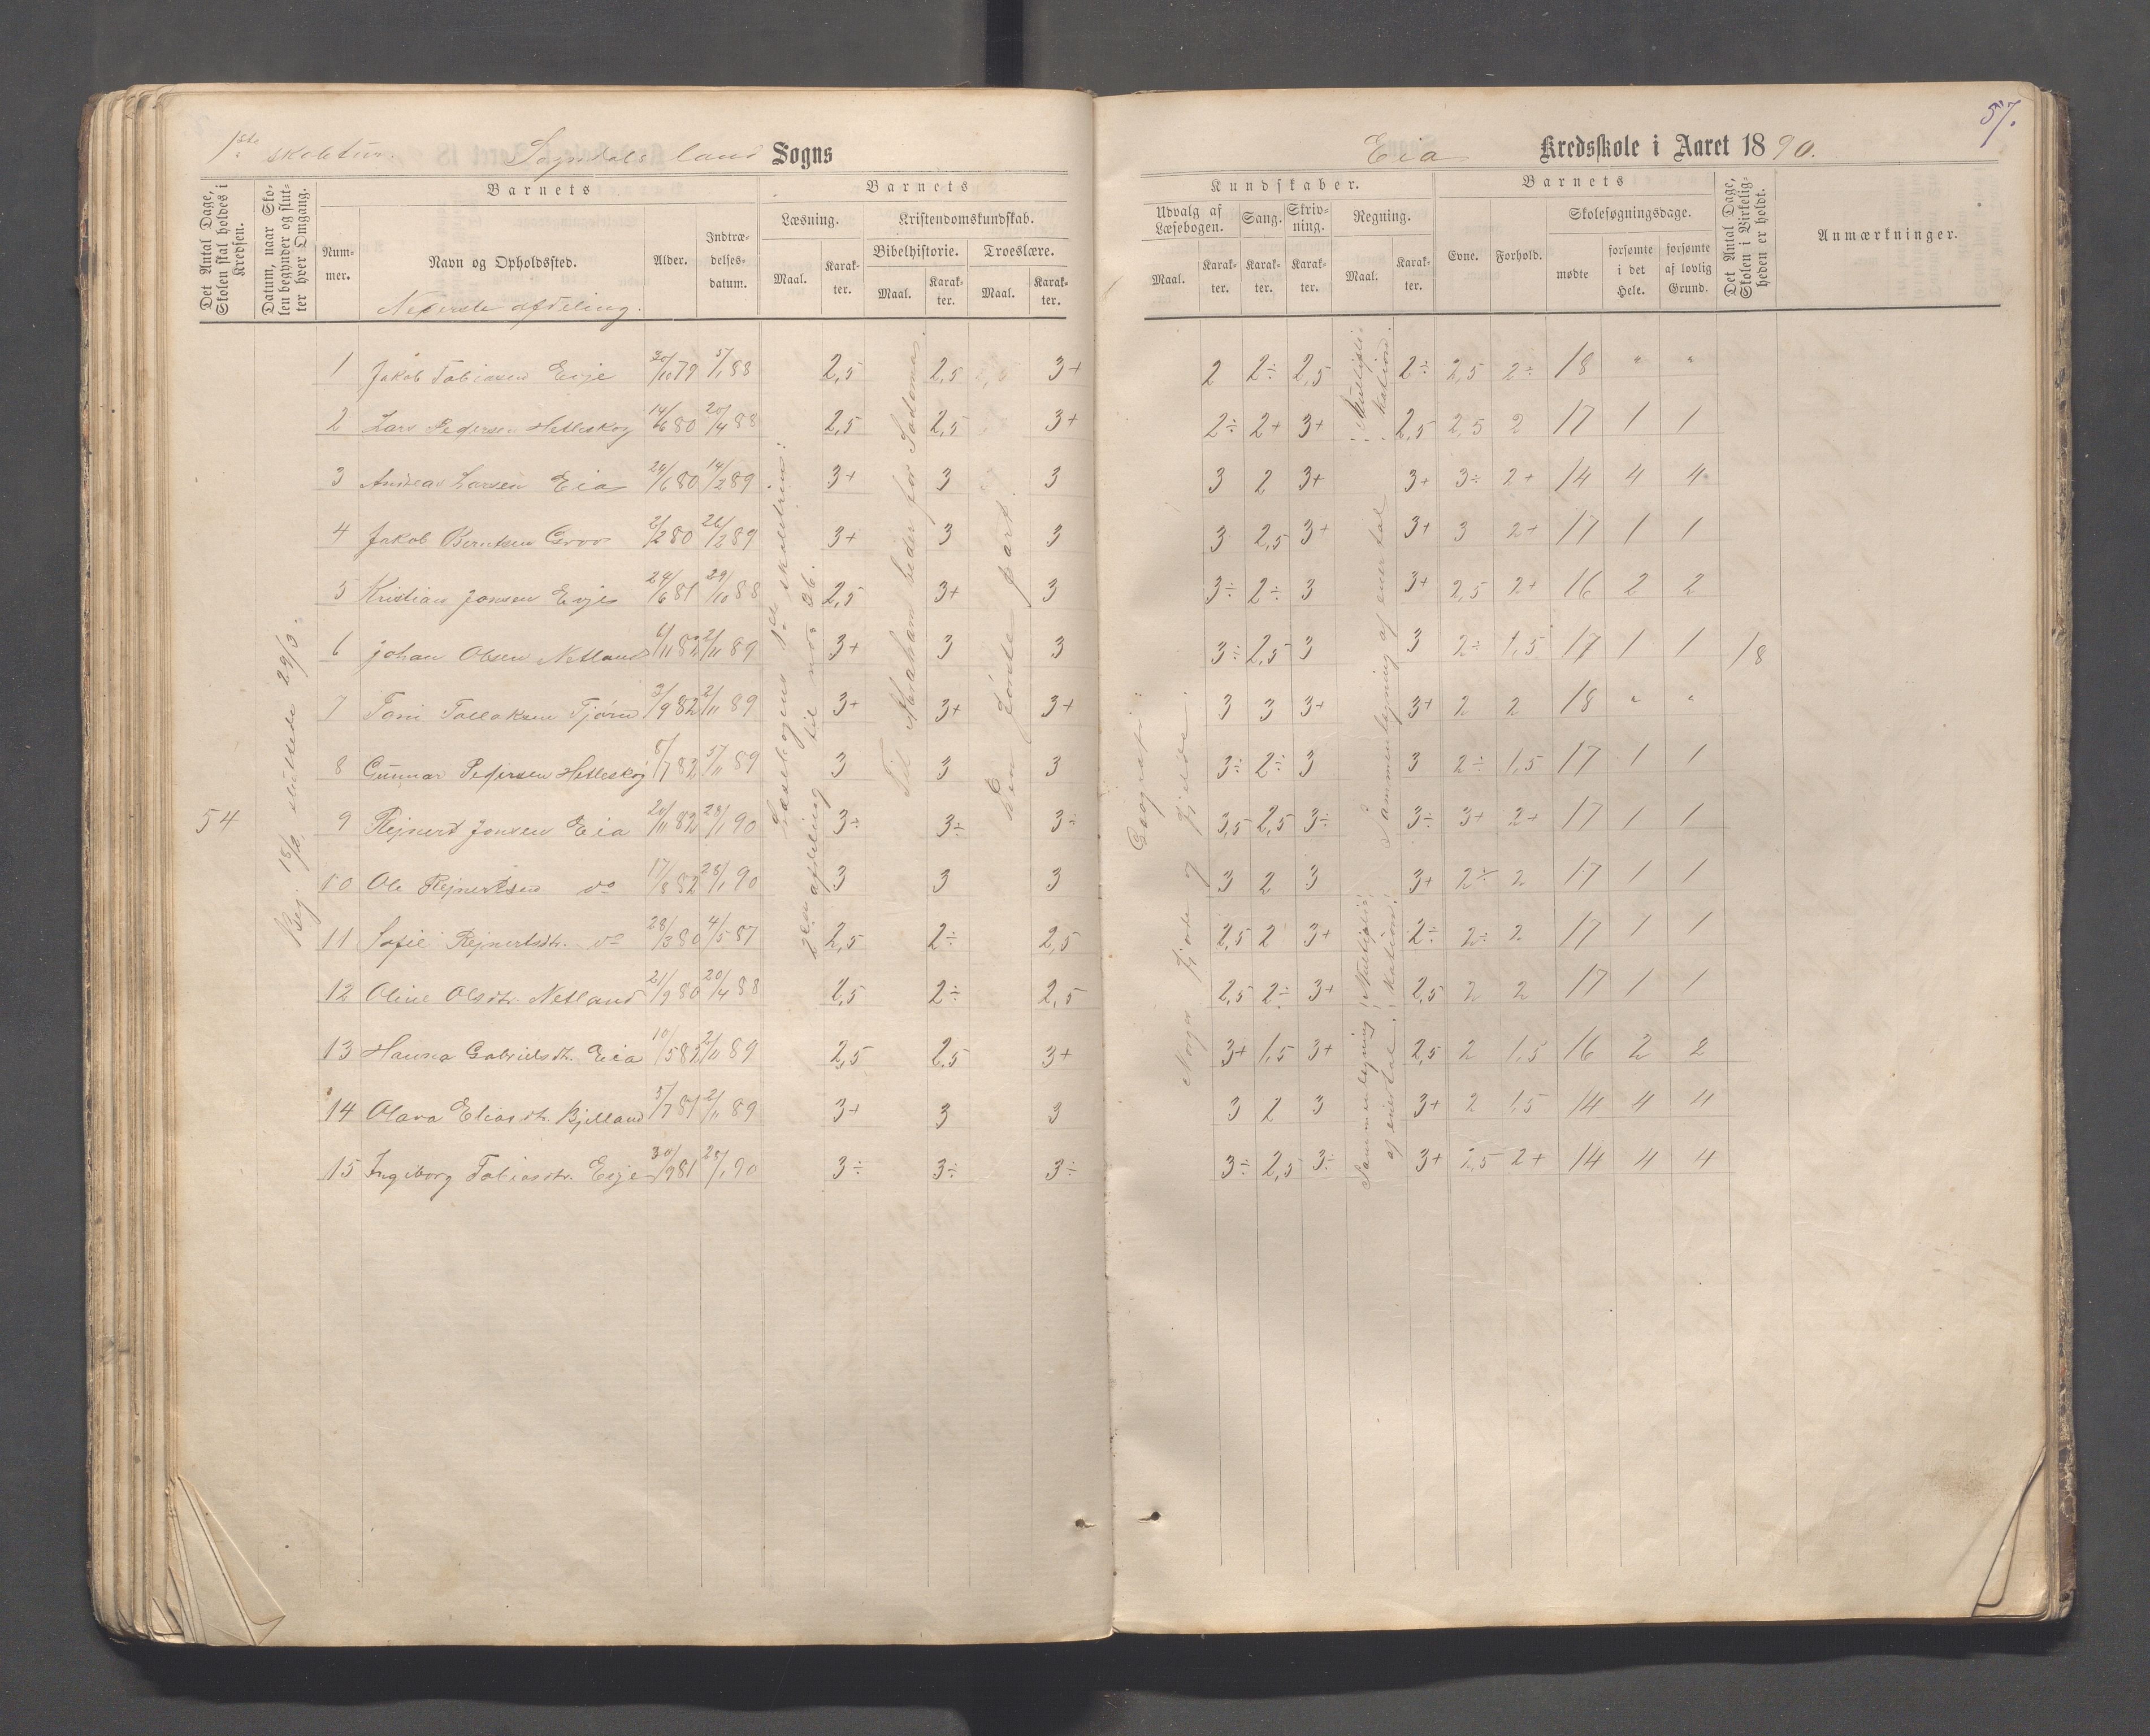 57.
1ste skoletur. Sogndals land Sogns
Eia Kredsskole i Aaret 1890.
Det Antal Dage, Skolen skal holdes i Kredsen.
Datum, naar Skolen begynder og slutter hver Omgang.
Barnets
Nummer.
Navn og Opholdssted.
Nederste afdeling.
Alder.
Indtrædelsesdatum.
Barnets
Læsning.
Maal.
Karakter.
Kristendomskundskab.
Bibelhistorie.
Maal.
Karakter.
Troeslære.
Maal.
Karakter.
Kundskaber.
Udvalg af Læsebogen.
Maal.
Karakter.
Sang.
Karakter.
Skrivning.
Karakter.
Regning.
Maal.
Karakter.
Barnets
Evne.
Forhold.
Skolesøgningsdage.
mødte
forsømte i det Hele.
forsømte af lovlig Grund.
Det Antal Dage, Skolen i Virkeligheden er holdt.
Anmærkninger.
54
Beg. 18/2, sluttede 29/3.
Læsebogens 1ste skoletrin:
2den afdeling til no: 36.
Til Abraham beder for Sodoma
Den fjorde part.
Geografi:
Norges fjorde og fjelde.
Multiplikation.
Sammenlægning af enertal
Sammenlægning af enertal. Multiplikation.
1 Jakob Tobiassen Eije 30/10 79 5/1 88 2,5 2,5 3+ 2 2÷ 2,5 2÷ 2,5 2÷ 18 " "
2 Lars Pedersen Hetleskog 14/6 80 20/4 88 2,5 2,5 3+ 2÷ 2+ 3+ 2,5 2,5 2 17 1 1
3 Andreas Larsen Eia 24/6 80 14/2 89 3+ 3 3 3 2 3+ 3+ 3÷ 2+ 14 4 4
4 Jakob Berntsen Eroo 2/2 80 26/2 89 3+ 3 3 3 2,5 3+ 3+ 3 2+ 17 1 1
5 Kristian Jonsen Eije 24/6 81 29/10 88 2,5 3+ 3 3÷ 2÷ 3 3+ 2,5 2+ 16 2 2
6 Johan Olsen Netland 6/11 82 2/11 89 3+ 3 3 3÷ 2,5 3 3 2÷ 1,5 17 1 1 18
7 Toni Tollaksen Tjørn 3/9 82 2/11 89 3+ 3+ 3+ 3 3 3+ 3+ 2 2 18 " "
8 Gunnar Pedersen Hetleskog 8/7 82 5/11 89 3 3 3 3÷ 2÷ 3 3 2÷ 1,5 17 1 1
9 Rejnert Jonsen Eia 20/11 82 28/1 90 3÷ 3÷ 3÷ 3,5 2,5 3÷ 3÷ 3+ 2+ 17 1 1
10 Ole Rejnertsen do 17/8 82 28/1 90 3 3 3 3 2 3 3+ 2÷ 2 17 1 1
11 Sofie Rejnertsdtr. do 28/3 80 4/5 87 2,5 2÷ 2,5 2,5 2 3+ 2÷ 2÷ 2 17 1 1
12 Oline Olsdtr. Netland 21/9 80 20/4 88 2,5 2÷ 2,5 2,5 2÷ 3+ 2,5 2 2 17 1 1
13 Hanna Gabrielsdtr. Eia 10/5 82 2/11 89 2,5 2,5 3+ 3+ 1,5 3+ 2,5 2 1,5 16 2 2
14 Olava Eliasdtr. Bjelland 5/7 81 2/11 89 3+ 3 3 3 2 3 3+ 2 1,5 14 4 4
15 Ingeborg Tobiasdtr. Eije 30/9 81 28/1 90 3÷ 3÷ 3÷ 3÷ 2,5 3÷ 3+ 2,5 2+ 14 4 4